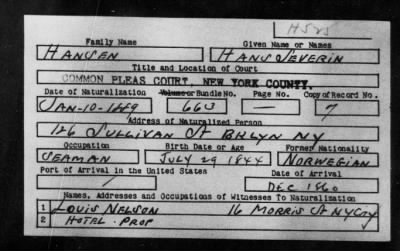 H525
Family Name Given Name or Names
HANSEN HANS SEVERIN
Title and Location of Court
COMMON PLEAS COURT, NEW YORK COUNTY.
Date of Naturalization Volume or Bundle No. Page No. Copy of Record No.
JAN-10-1889 663 — 7
Address of Naturalized Person
126 SULLIVAN ST BKLYN NY
Occupation Birth Date or Age Former Nationality
SEAMAN JULY 29 1844 NORWEGIAN
Port of Arrival in the United States Date of Arrival
/ DEC 1860
Names, Addresses and Occupations of Witnesses To Naturalization
1 LOUIS NELSON 16 MORRIS ST NYCITY
2 HOTEL. PROP